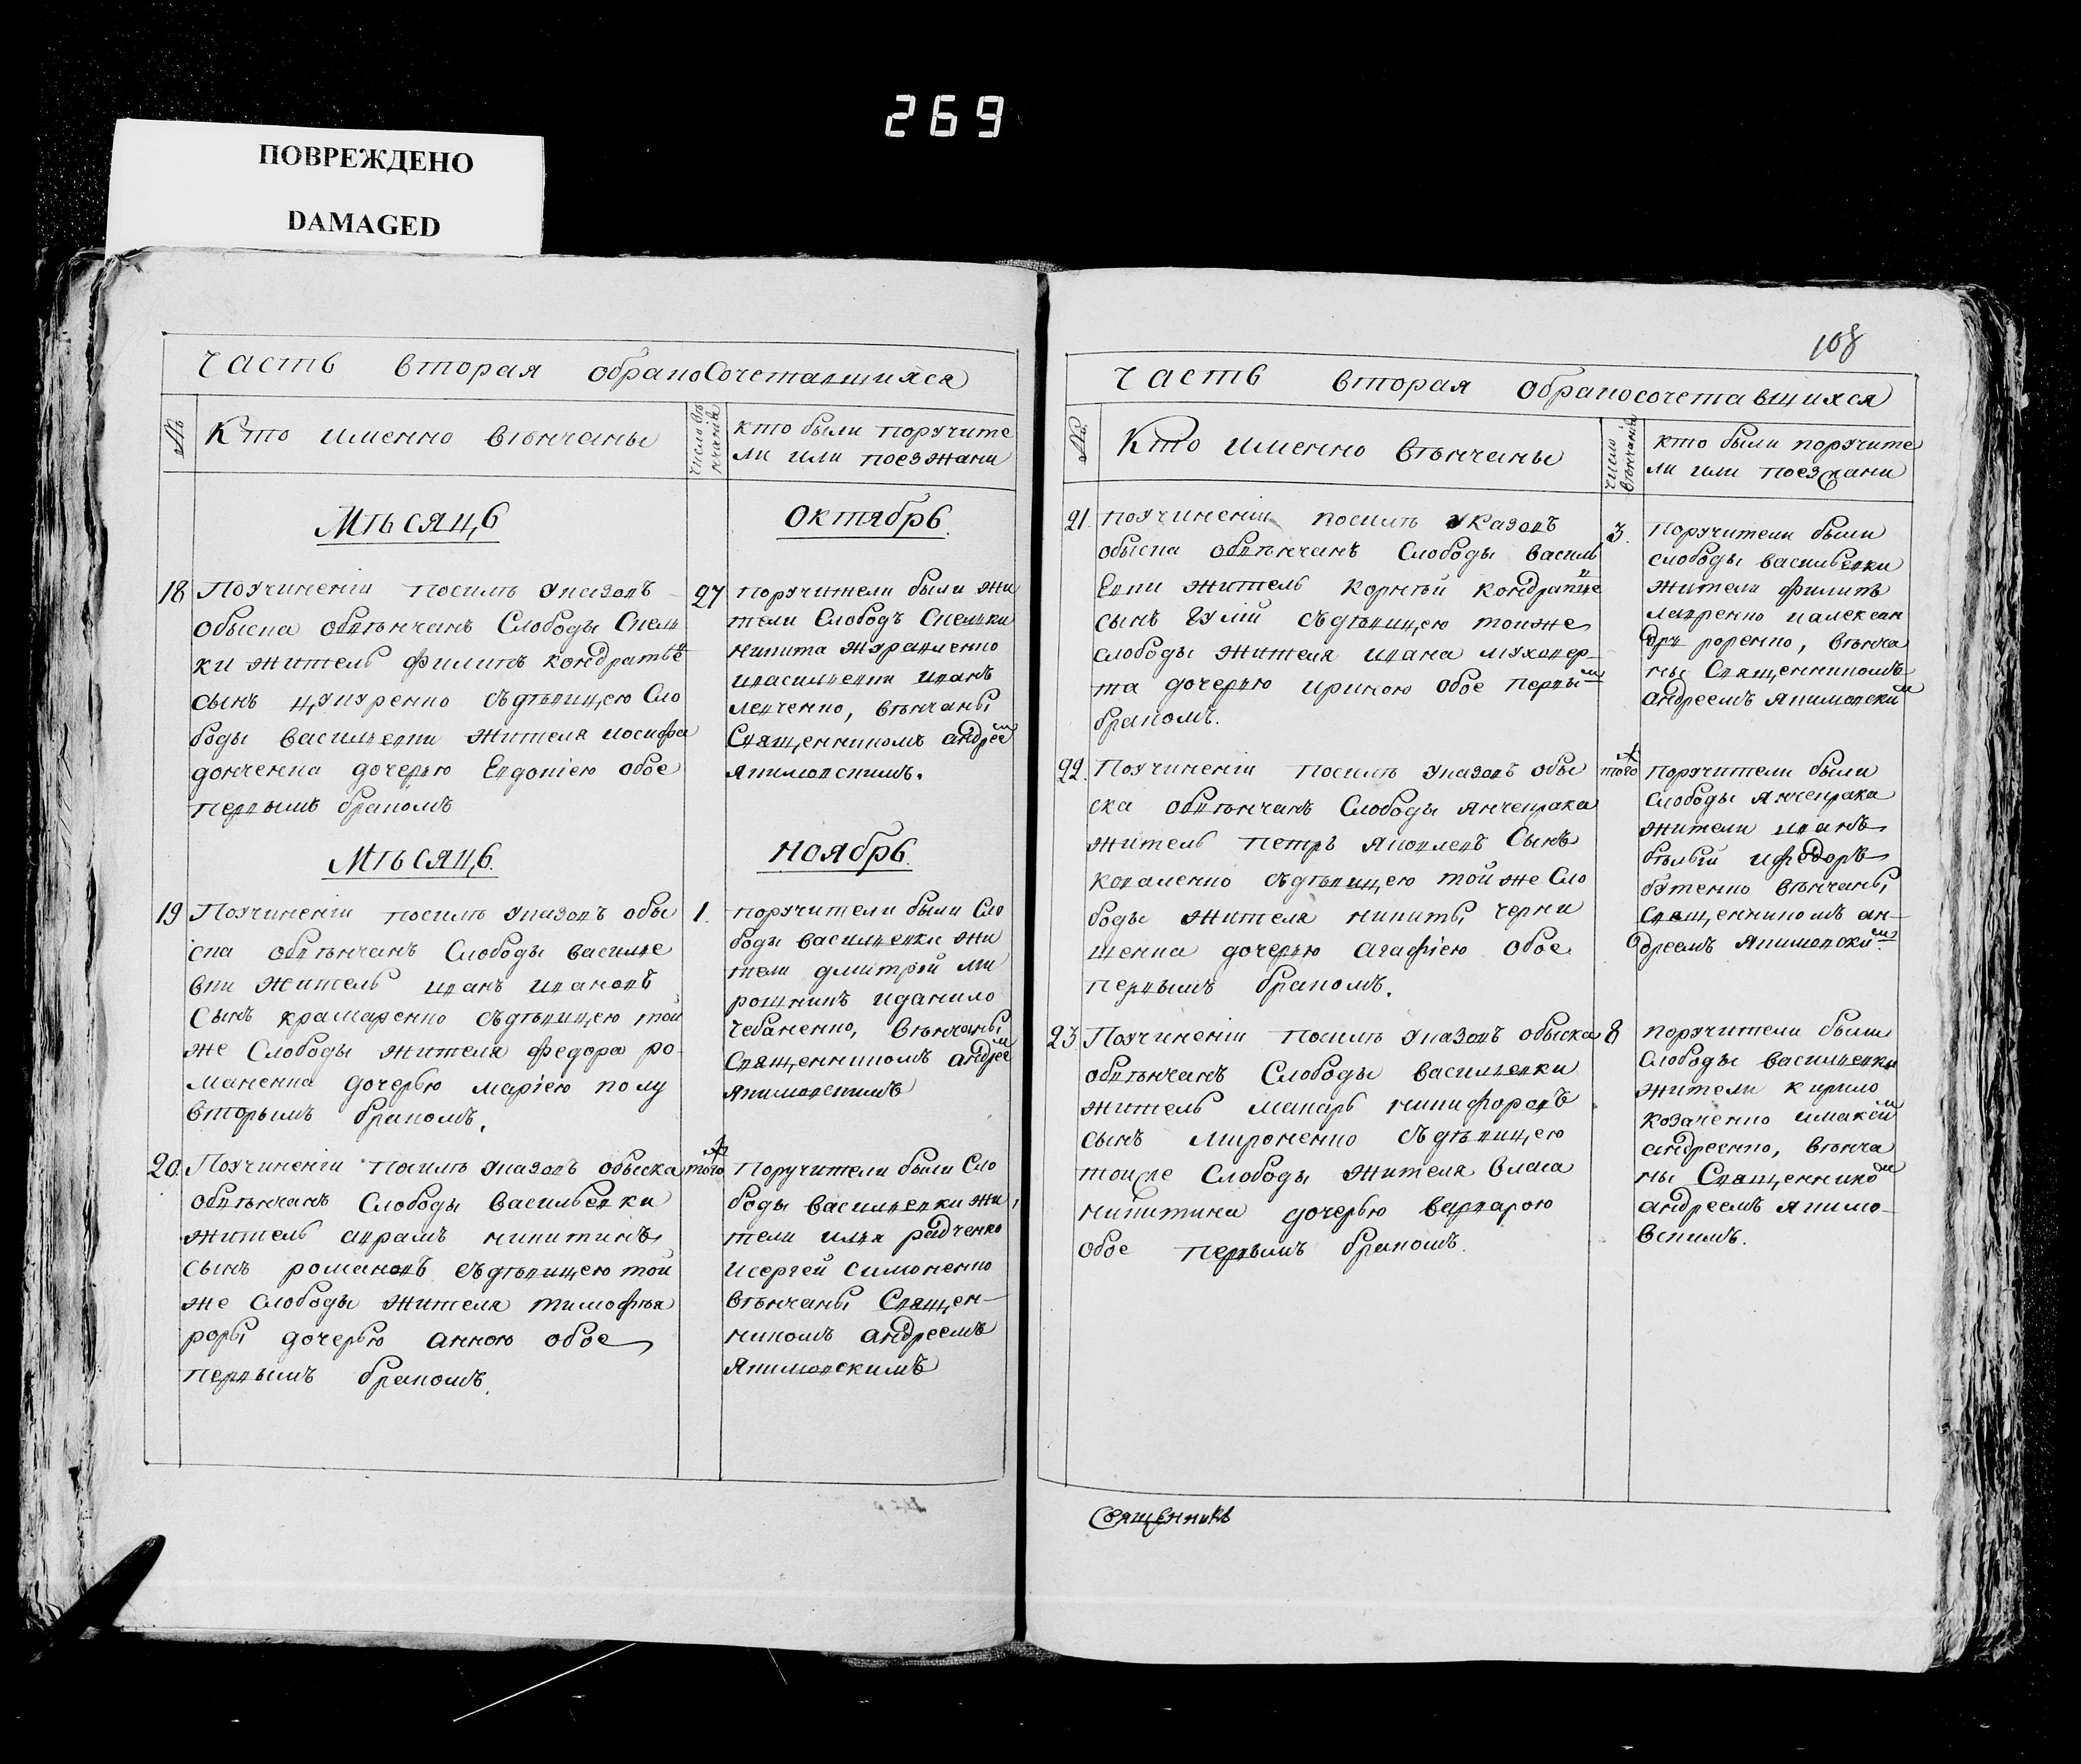 269
ПОВРЕЖДЕНО
DAMAGED
Часть вторая обракосочетавшихся
№
Кто именно вѣнчаны
число вѣ
нчанія
кто были поручите
ли или поезжани
Мѣсяцъ
Октябрь.
18 Поучиненіи посилѣ указовъ
обыска обвѣнчанъ Слободы Спелы
ки житель филипъ кондратьев
сынъ цукуренко сдѣвицею Сло
боды васильевки жителя иосифа
донченка дочерью Евдокіею обое
первымъ бракомъ
27
поручители были жи
тели Слободъ
никита журавленко
ивасильевки иванъ
левченко, вѣнчаны
Священникомъ андрее м
якимовскимъ.
Мѣсяцъ.
ноябрь
19 Поучиненіи посилѣ указовъ обы
ска обвѣнчанъ Слободы василье
вки житель иванъ ивановъ
Сынъ крамаренко сдѣвицею той
же Слободы жителя федора ро
маненка дочерью маріею полу
вторымъ бракомъ.
1.
поручители были Сло
боды васильевки жи
тели дмитрій ми
рошникъ иданило
чебаненко, вѣнчаны
Священникомъ андрее м
якимовскимъ
20. Поучиненіи посилѣ указовъ обыска
обвѣнчанъ Слободы васильевки
житель аврамъ никитинъ
сынъ романовъ сдѣвицею той
же слободы жителя тимофѣя
роры дочерью анною обое
первымъ бракомъ.
того ж
Поручители были Сло
боды васильевки жи
тели илья радченко
исергей симоненко
вѣнчаны Священ-
никомъ андреемъ
якимовскимъ
108
Часть вторая обракосочетавшихся
№.
Кто именно вѣнчаны
число
вѣнчанія
кто были поручите
ли или поезжани
21. поучиненіи посилѣ указовъ
обыска обвѣнчанъ Слободы василь
Евки житель корнѣй кондратье в
сынъ гулій сдѣвицею тоиже
слободы жителя ивана муховер
та дочерью ириною обое первы м
бракомъ.
3.
поручители были
слободы васильевки
жители филипъ
лавренко иалексан
дръ роренко, вѣнча
ны Священникомъ
андреемъ якимовски м
22. Поучиненіи посилѣ указовъ обы
ска обвѣнчанъ Слободы янчекрака
житель петръ яковлевъ Сынъ
коваленко сдѣвицею той же Сло
боды жителя никиты черни
шенка дочерью агафіею обое
первымъ бракомъ.
того ж
поручители были
слободы янчекрака
жители иванъ
бѣлый ифедоръ
бутенко вѣнчаны
Священникомъ ан-
дреемъ якимовски м.
23. Поучиненіи посилѣ указовъ обыска
обвѣнчанъ Слободы васильевки
житель макаръ никифоровъ
сынъ мироненко сдѣвицею
тоиже Слободы жителя власа
никитина дочерью варварою
обое первымъ бракомъ.
8
поручители были
Слободы васильевки
жители кирило
козаченко имаксим
андреенко, вѣнча
ны Священнико м
андреемъ якимо-
вскимъ.
Священникъ